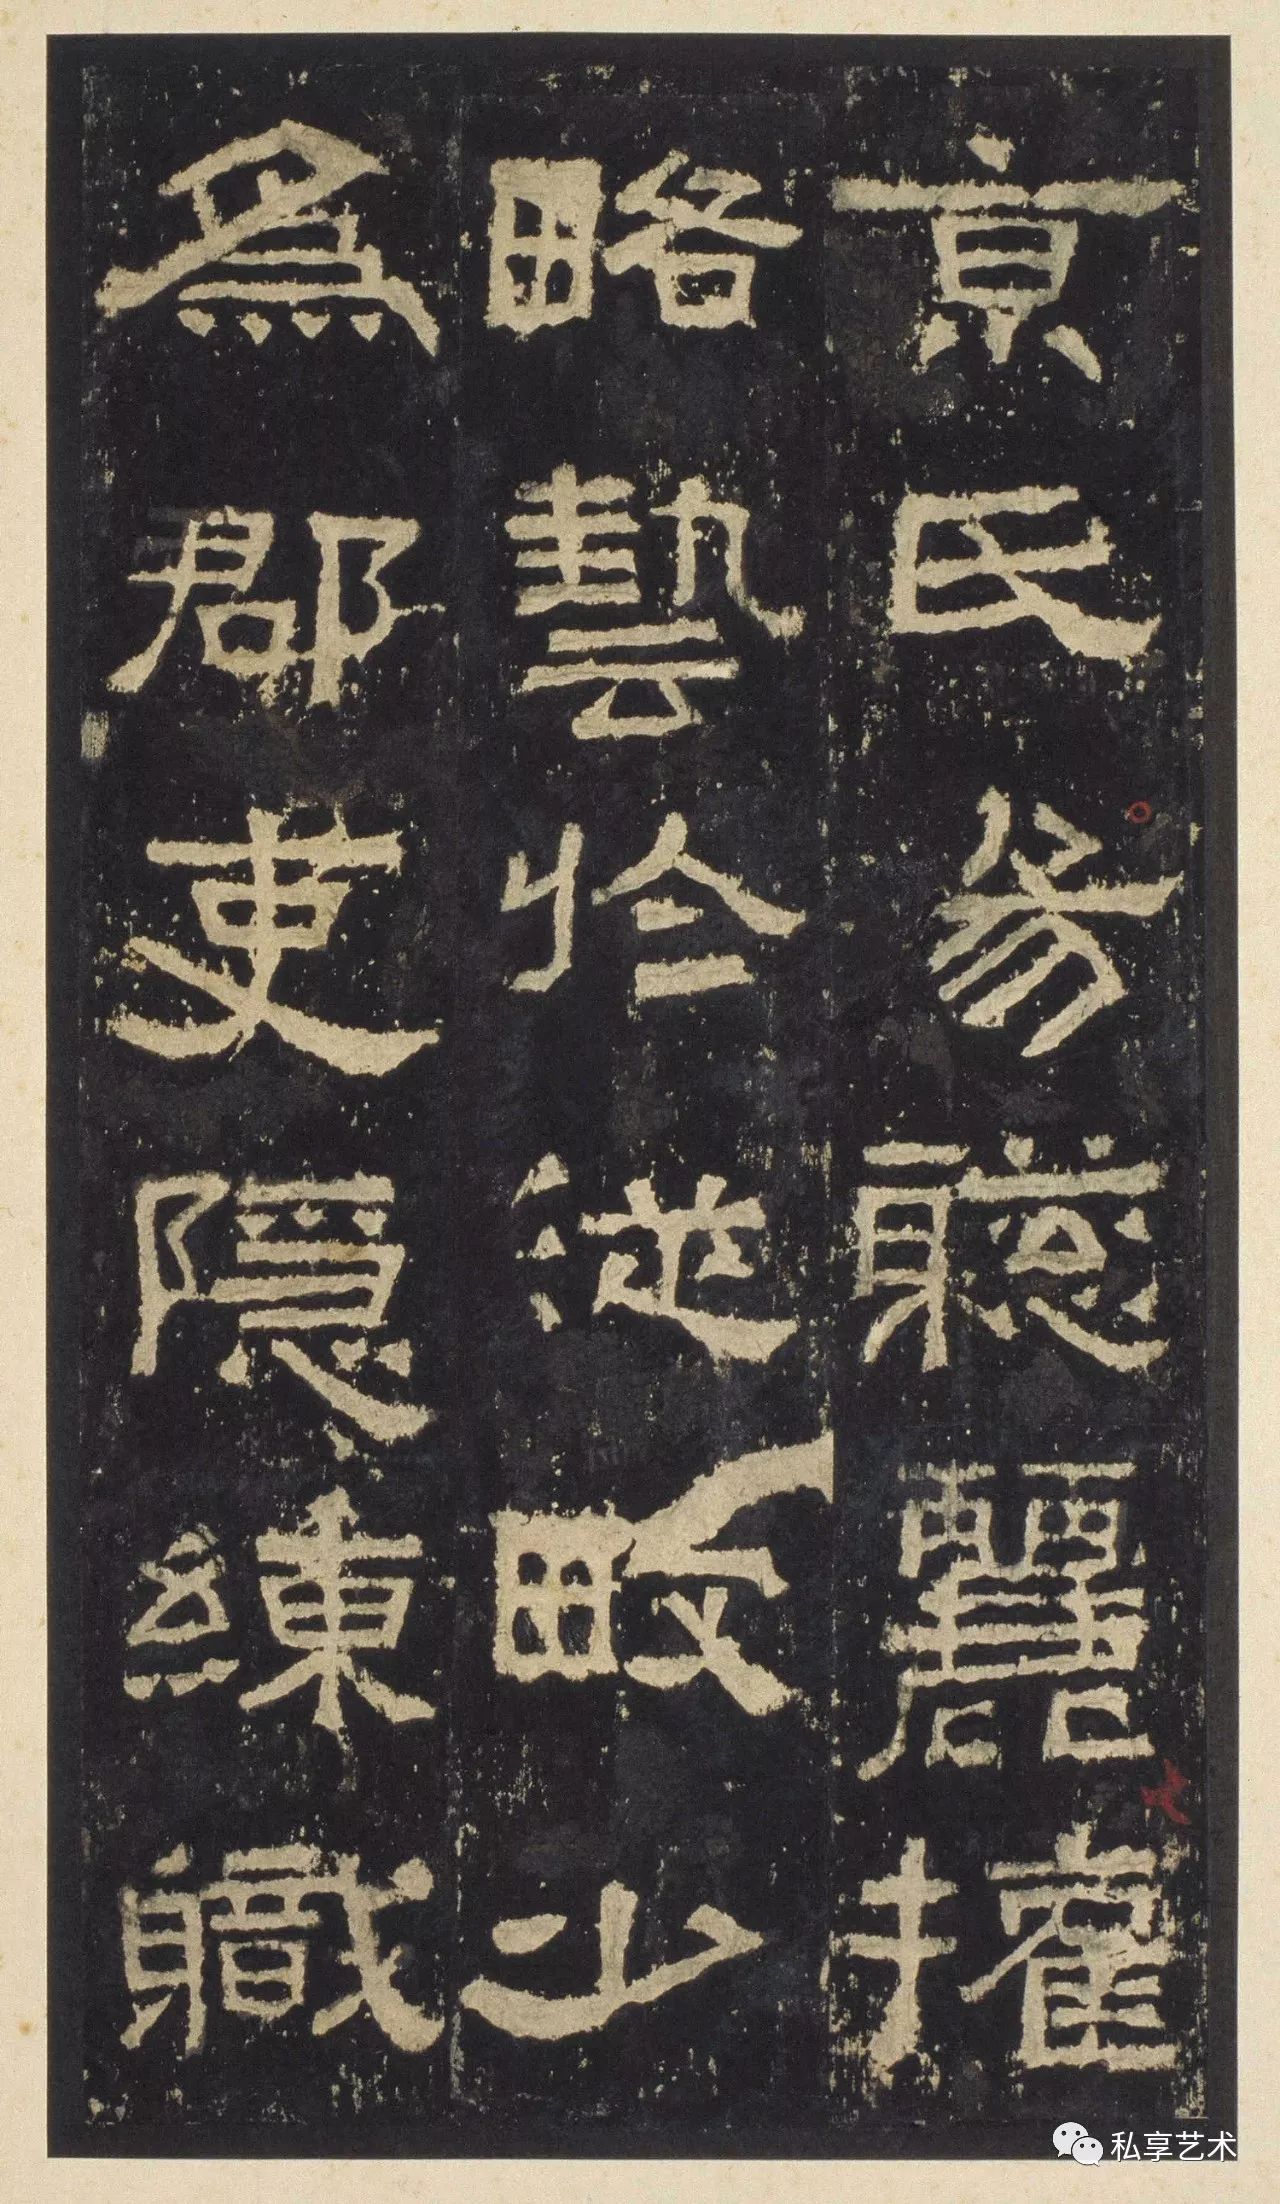 京氏易聰麗權
略藝於從畋少
為郡吏隱練職
私享艺术